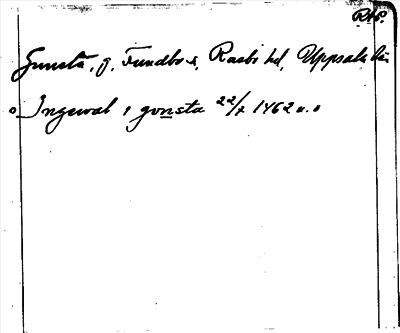 RAP.
Gunsta, g. Funbo s, Rasbo hd, Uppsala län
Ingewal i gonsta 22/7 1462 u. o